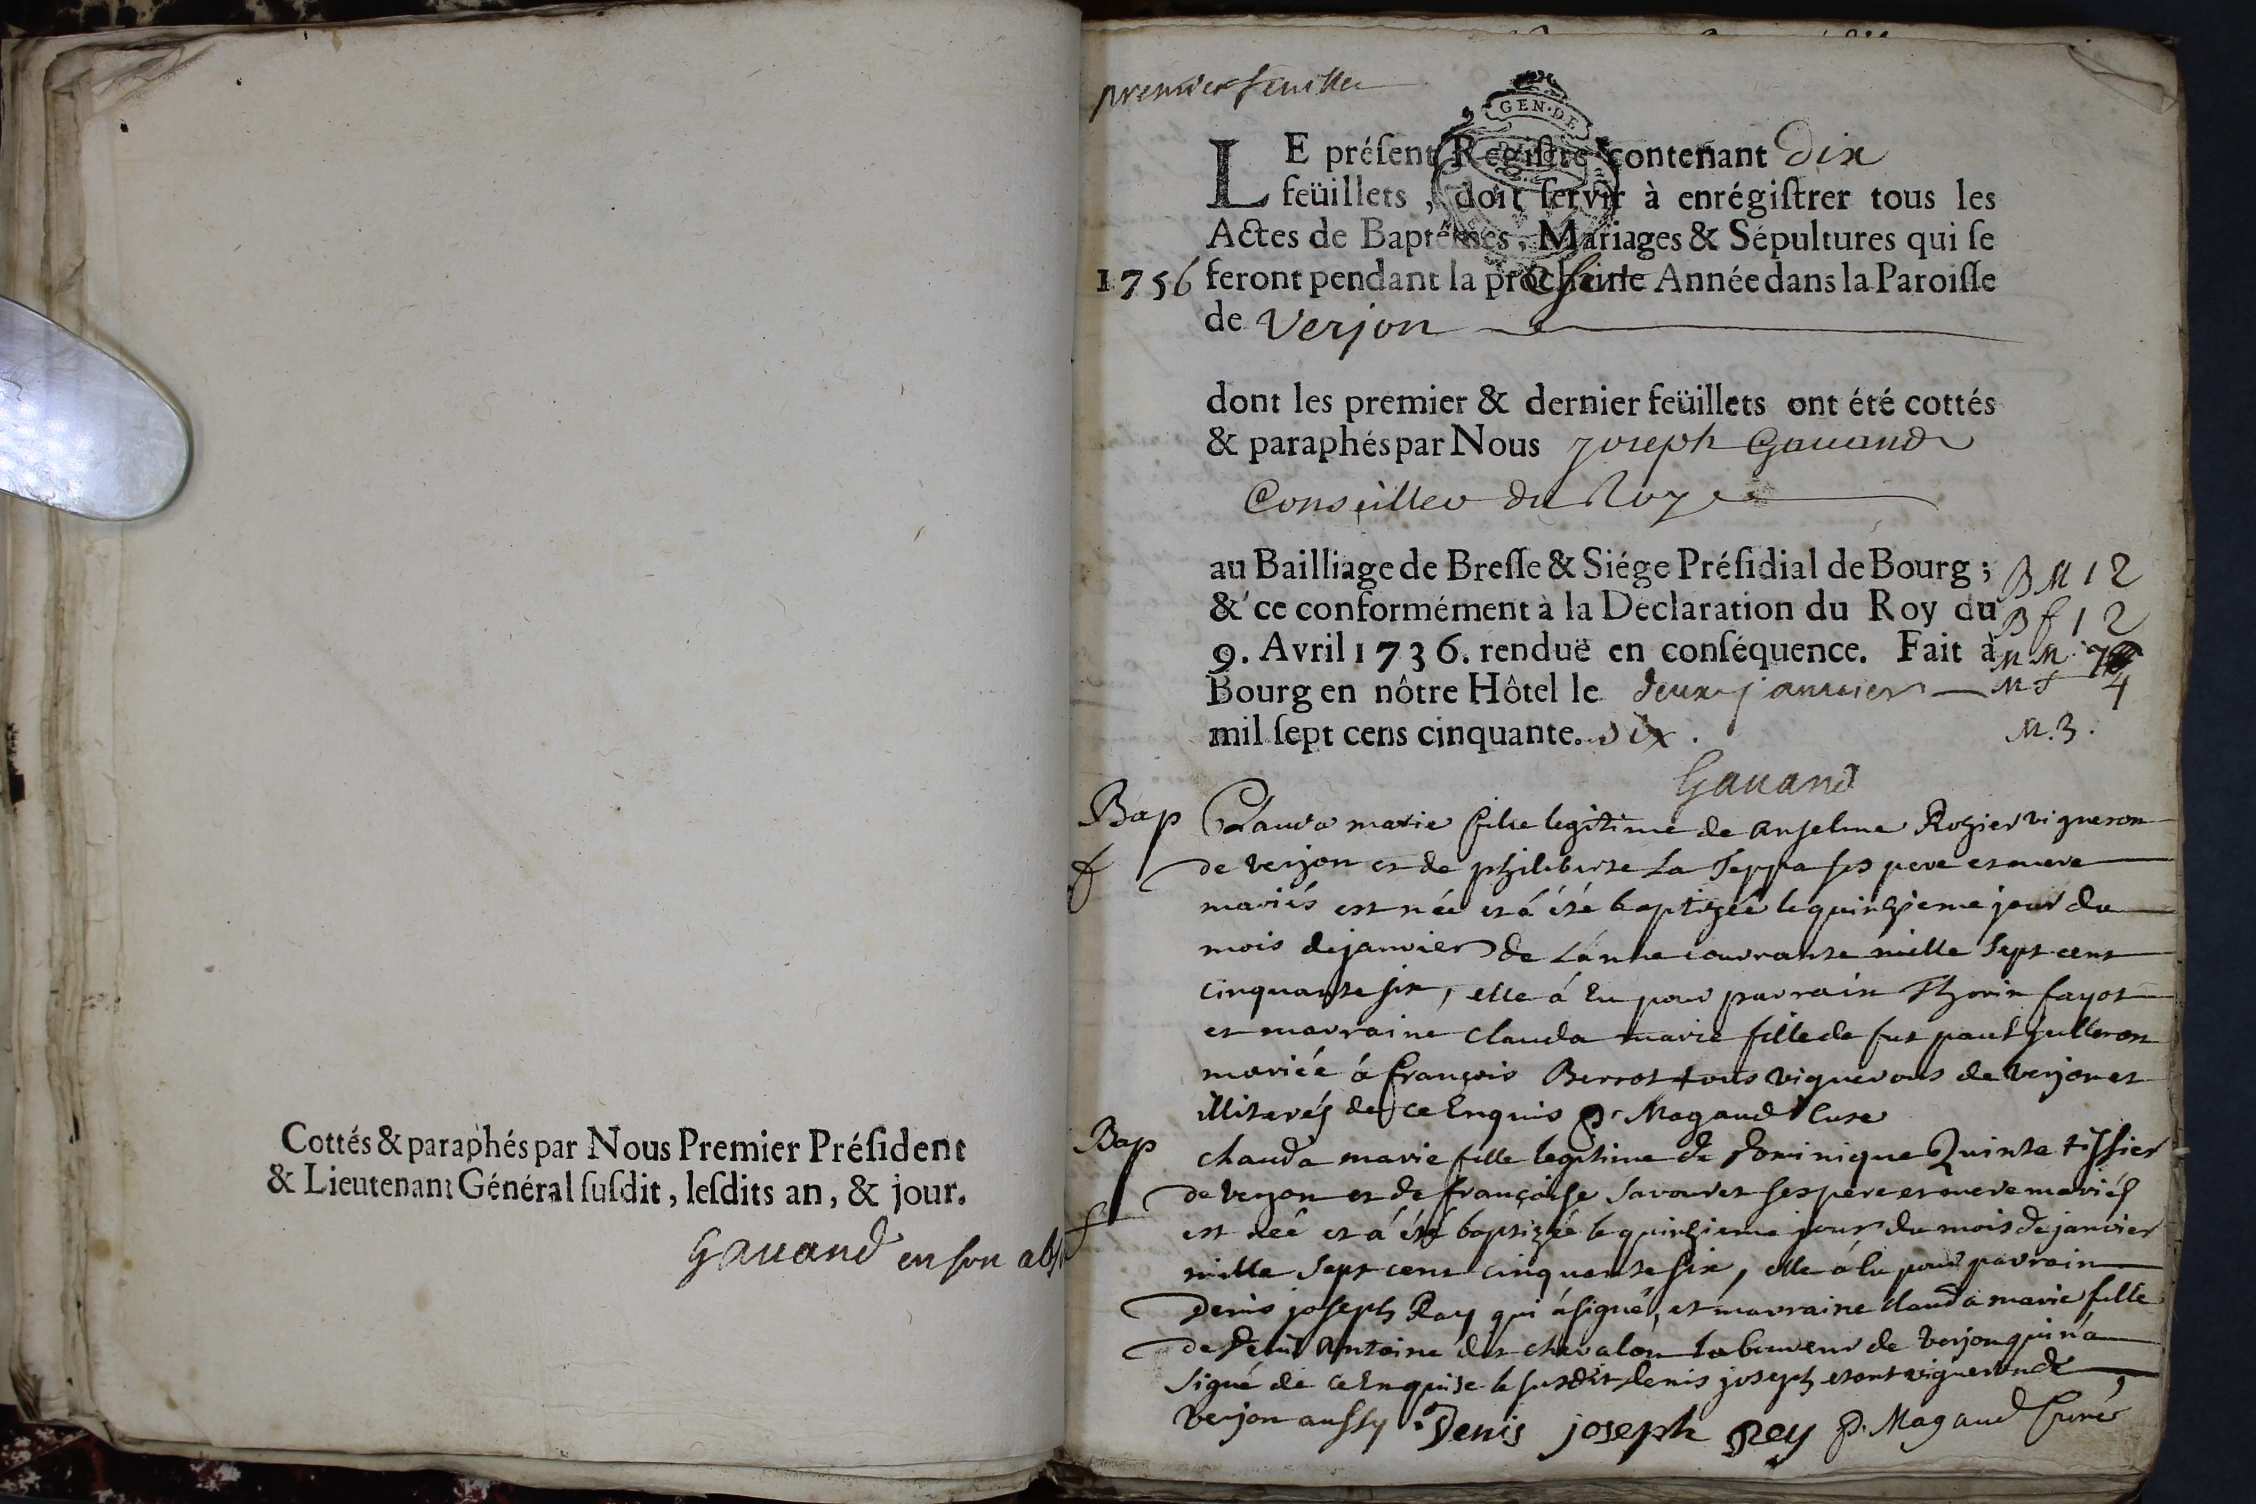 Cottés & paraphés par Nous Premier Préſident
& Lieutenant Général ſuſdit, leſdits an, & jour.
Gauand en son abs
premier feuillet
GEN·DE
LE préſent Regiſtre contenant dix
feüillets, doit ſervir à enrégiſtrer tous les
Actes de Baptêmes, Mariages & Sépultures qui ſe
1756 feront pendant la prochaine Année dans la Paroiſſe
de Verjon
dont les premier & dernier feüillets ont été cottés
& paraphés par Nous Joseph Gauand
Conseiller du Roy
au Bailliage de Breſſe & Siége Préſidial de Bourg ;
& ce conformément à la Déclaration du Roy du
9. Avril 1736. renduë en conſéquence. Fait à
Bourg en nôtre Hôtel le deux januier
mil ſept cens cinquante. six.
BM 12
Bf 12
MM. 7
Mf 4
M. 3.
Gauand
Bap
f
Clauda marie fille legitime de anselme Rozier vigneron
de verjon et de philiberte La Teppa ses pere et mere
mariés est née et á été baptizée le quinzieme jour du
mois de janvier de L'anne courrante mille sept cent
cinquante six, elle á Eu pour parrain Thorin fayot
et marraine clauda marie fille de fut paul Gulleron
mariée á françois Berrot tous vignerons de verjon et
illiterés de ce Enquis P. Magaud Cure
Bap
f
clauda marie fille legitime de dominique Quinte tissier
de verjon et de françoise savouret ses pere et mere mariés
est née et á été baptizée le quinzieme jour du mois de janvier
mille sept cent cinquante six, elle á Eu pour parrain
Denis joseph Ray qui á signé, et marraine clauda marie fille
de denis Antoine chevalon laboureur de verjon qui n'a
signé de ce Enquise le susdit denis joseph etant vigneron de
verjon aussy. Denis joseph Rey P. Magaud Curé